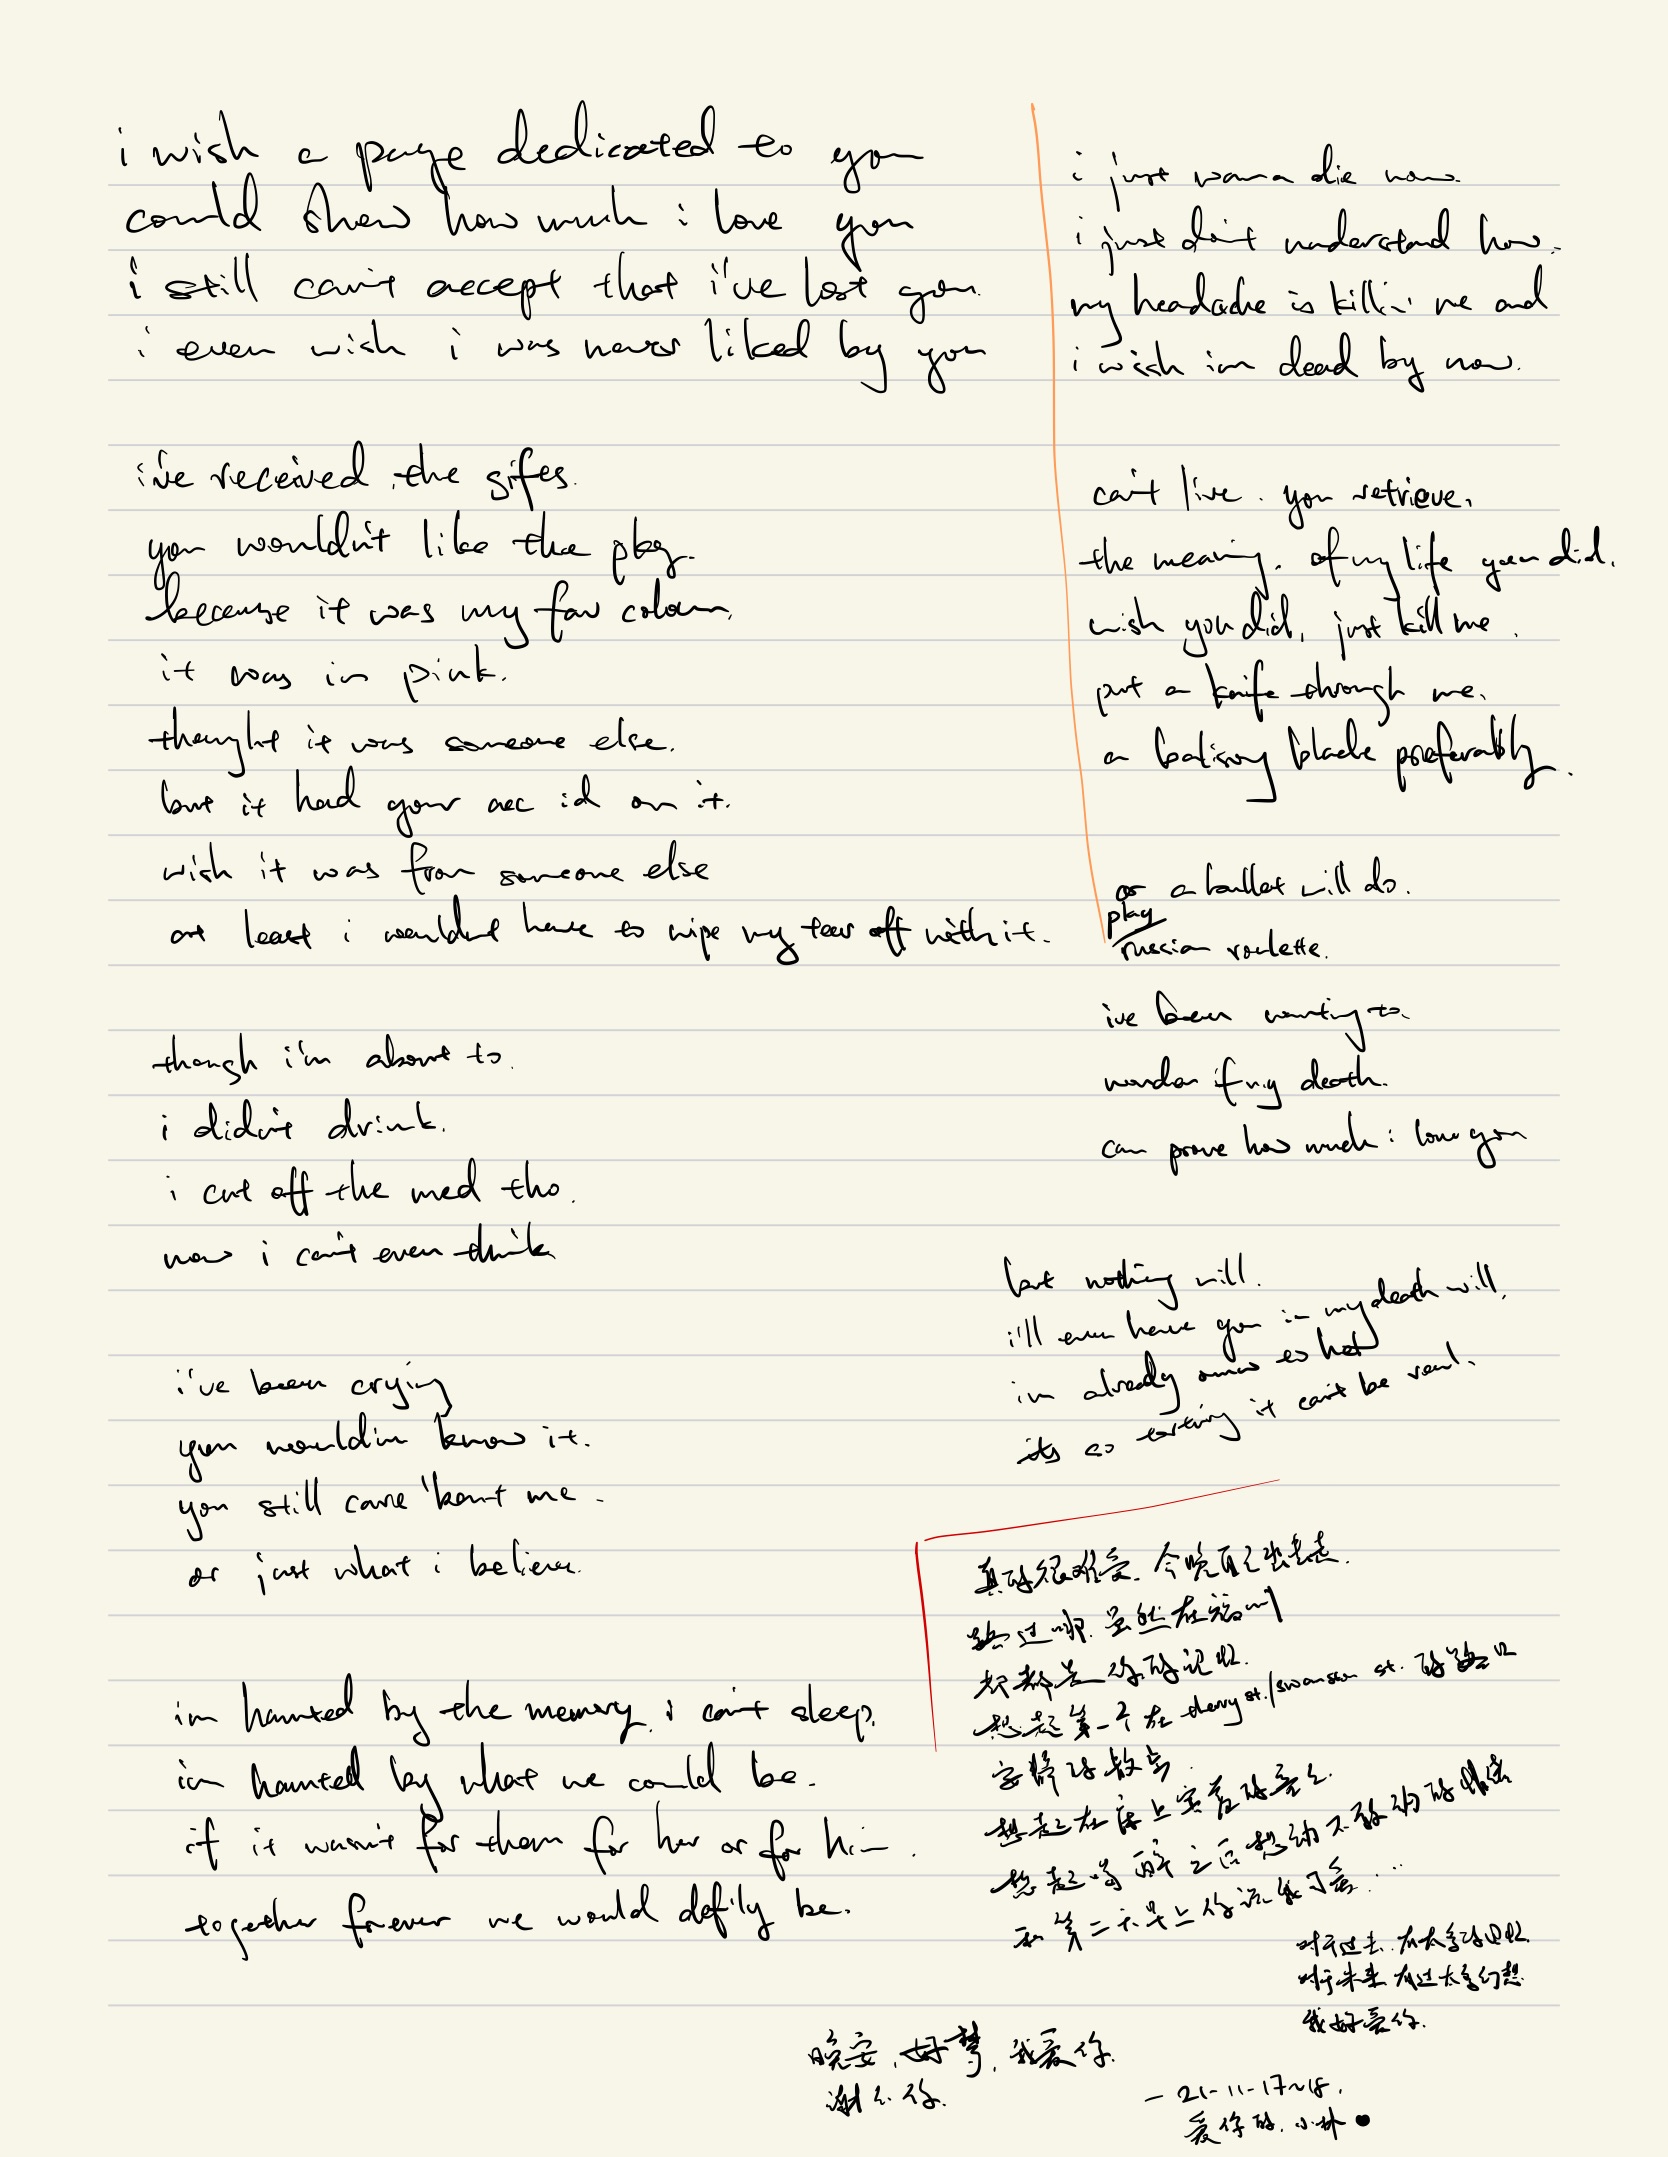 i wish a page dedicated to you
could show how much i love you
i still can't accept that i've lost you.
i even wish i was never liked by you
i've received the gifts.
you wouldn't like the
because it was my fav colour.
it was in pink.
thought it was someone else.
but it had your acc id on it.
wish it was from someone else
at least i wouldnt have to wipe my tear off with it.
though i'm about to.
i didn't drink.
i cut off the med tho.
now i can't even think
i've been crying
you wouldn know it.
you still care 'bout me.
or just what i believe.
im haunted by the memory. i can't sleep.
im haunted by what we could be.
if it wasn't for them for her or for him.
together forever we would defily be.
i just wanna die now.
i just don't understand how.
my headache is killin' me and
i wish im dead by now.
can't live. you retrieve.
the meaning. of my life you did.
wish you did, just kill me.
put a knife through me.
a blade preferably.
or a bullet will do.
play
russian roulette.
ive been wanting to.
wonder if my death.
can prove how much i love you
but nothing will.
i'll even have you in my death will.
im already
its so it can't be real.
真的很难受. 今晚自己出去走.
路过哪. 虽然在福州
却都是你的记忆.
想起第一个在 st./swanson st. 的路口
安静的
想起在床上 的
想起喝醉之后想 不敢 的
和第二天早上你说
对于过去. 有太多的回忆.
对于未来 有过太多幻想.
我好爱你.
晚安, 好梦, 我爱你.
谢谢你.
— 21-11-17~18.
爱你的. 小林